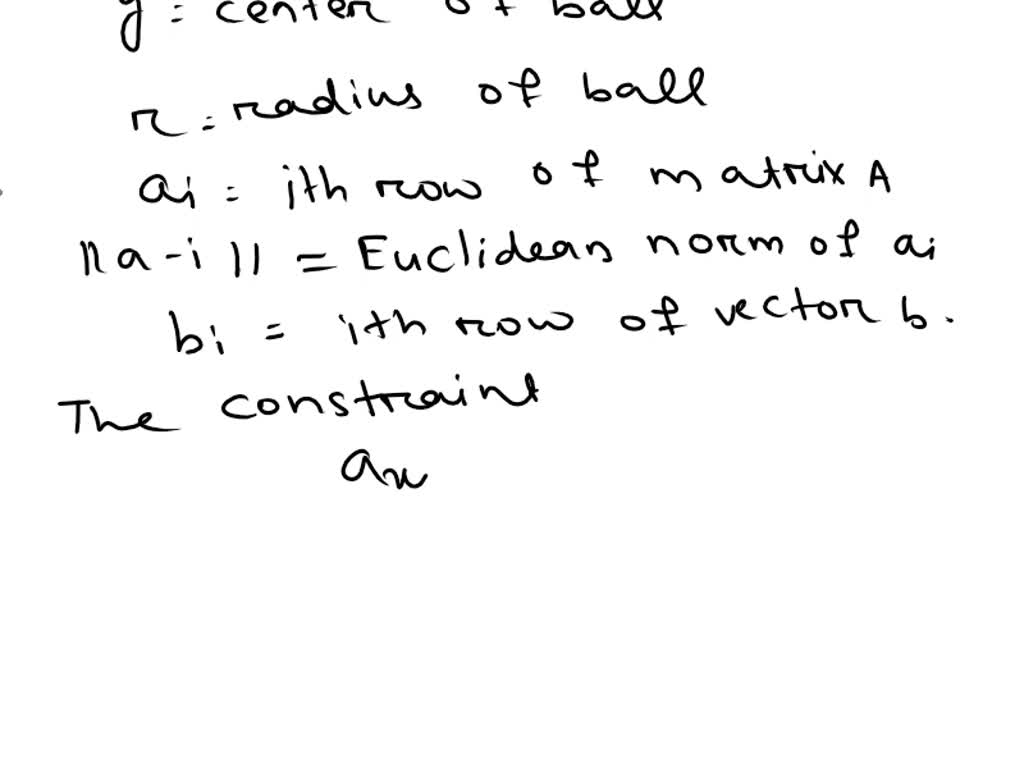 y = center of ball
r = radius of ball
ai = ith row of matrix A
||a-i|| = Euclidean norm of ai
bi = ith row of vector b.
The constraint
ax